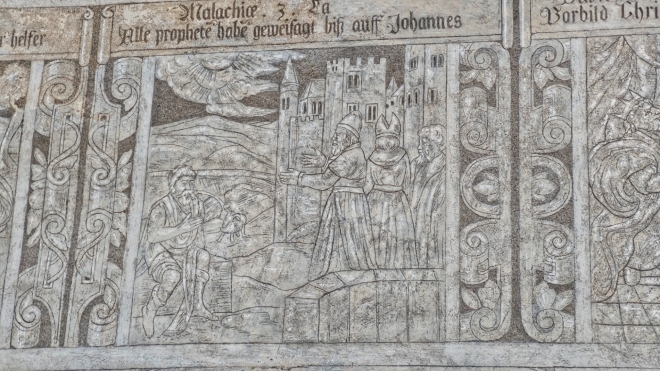 r helfer
Malachiæ. 3. Ca
Alle prophetē habē geweisagt biß auff Johannes
Vorbild Chri